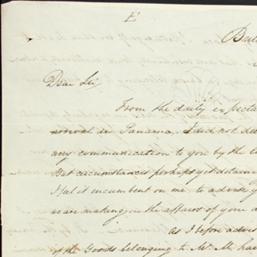 E'
Dear Sir
From the daily expecta
arrival in Panama, I did not dee
any communication to you by the
But circumstances perhaps yet detain
I feel it incumbent on me to advise y
is on making on the affairs of your
as I before advis
of the Goods belonging to Mr. M.